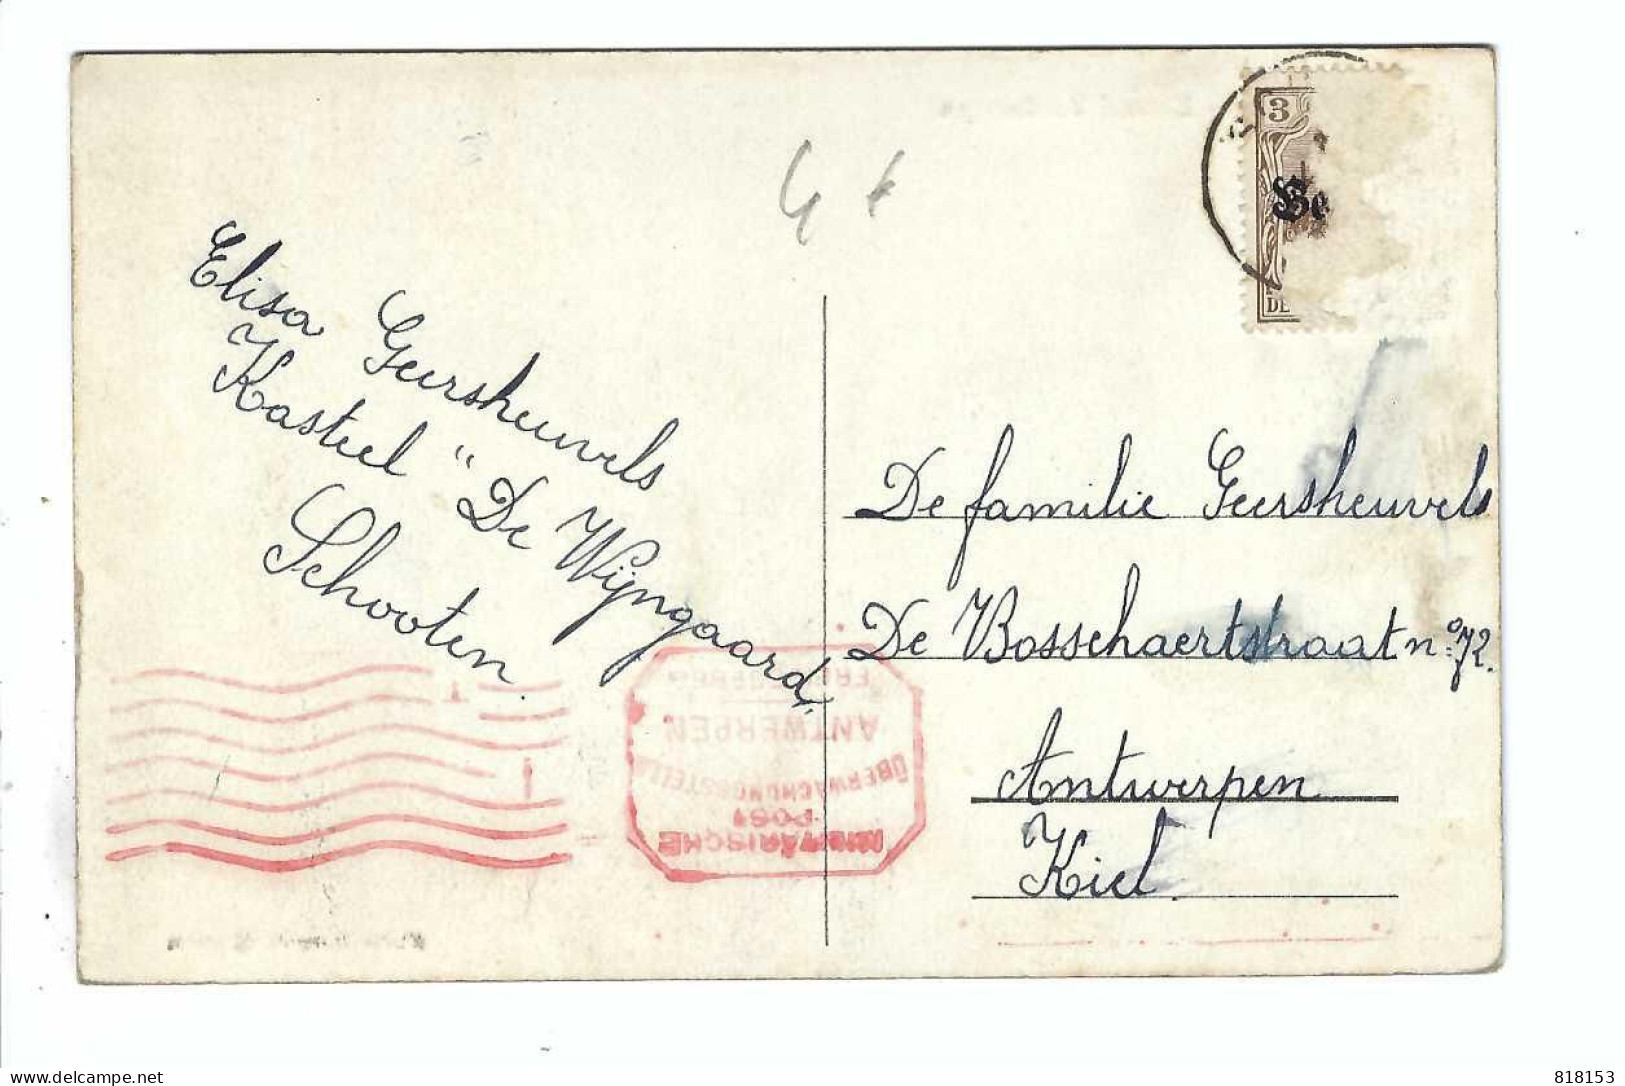 4 €
3
DE
Elisa Geersheuvels
Kasteel "De Wijngaard,
Schooten.
De familie Geersheuvels
De Bosschaertstraat nº 72.
Antwerpen
Kiel.
ANTWERPEN
ÜBERWACHUNGSSTELLE
POST
MILITÄRISCHE
delcampe.net
818153